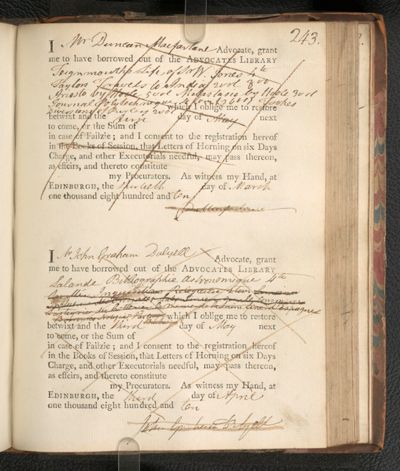 243.
I Mr Duncan Macfarlane Advocate, grant
me to have borrowed out of the ADVOCATES LIBRARY
Teignmouths Life of Sir W. Jones 4to
Taylors Travels to India 2 vol
by Hoole 2 vol
Journal Polytechnique
which I oblige me to restore
betwixt and the first day of May next
to come, or the Sum of
in case of Failzie; and I consent to the registration hereof
in the Books of Session, that Letters of Horning on six Days
Charge, and other Executorials needful, may pass thereon,
as effeirs, and thereto constitute
my Procurators. As witness my Hand, at
EDINBURGH, the day of March
one thousand eight hundred and ten
I Mr John Graham Dalyell Advocate, grant
me to have borrowed out of the ADVOCATES LIBRARY
Lalande Bibliographie Astronomique 4to
which I oblige me to restore
betwixt and the third day of May next
to come, or the Sum of
in case of Failzie; and I consent to the registration hereof
in the Books of Session, that Letters of Horning on six Days
Charge, and other Executorials needful, may pass thereon,
as effeirs, and thereto constitute
my Procurators. As witness my Hand, at
EDINBURGH, the third day of April
one thousand eight hundred and ten
John Graham Dalyell